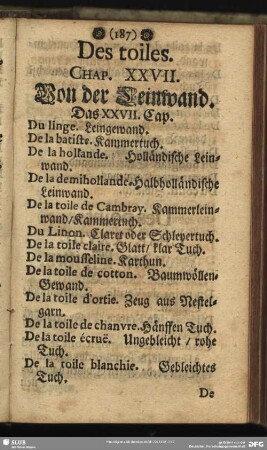 (187)
Des toiles.
CHAP. XXVII.
Von der Leinwand.
Das XXVII. Cap.
Du linge. Leingewand.
De la batiste. Kammertuch.
De la hollande. Holländische Lein-
wand.
De la demihollande. Halbholländische
Leinwand.
De la toile de Cambray. Kammerlein-
wand/Kammertuch.
Du Linon. Claret oder Schleyertuch.
De la toile claire. Glatt/ klar Tuch.
De la mousseline. Karthun.
De la toile de cotton. Baumwöllen-
Gewand.
De la toile d'ortie. Zeug aus Nestel-
garn.
De la toile de chanvre. Hänffen Tuch.
De la toile écruë. Ungebleicht / rohe
Tuch.
De la toile blanchie. Gebleichtes
Tuch.
De
SLUB
DFG